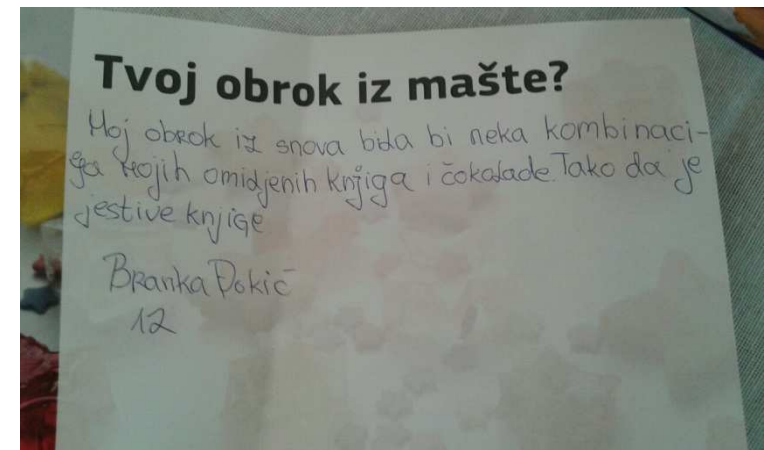 Tvoj obrok iz mašte?
Moj obrok iz snova bila bi neka kombinaci-
ja mojih omiljenih knjiga i čokolade. Tako da je
jestive knjige
Branka Đokić
12